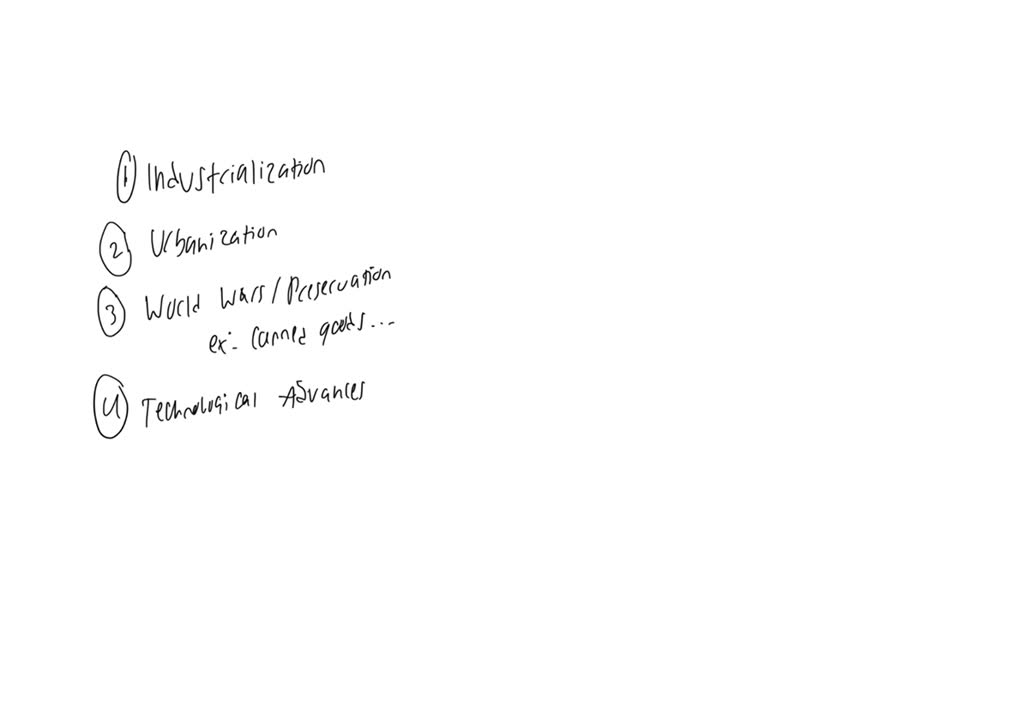 ① Industrialization
② Urbanization
③ World Wars/Preservation
ex: Canned goods...
④ Technological Advances